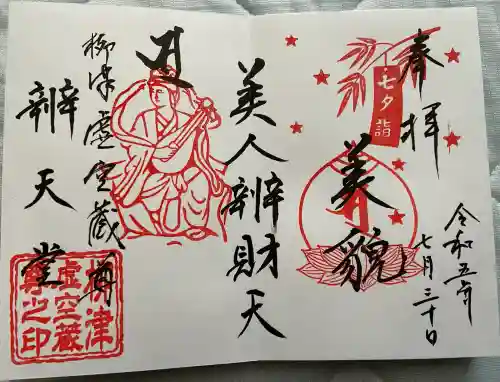 奉拝
令和五年
七月三十日
七夕詣
美貌
美人辨財天
柳津虚空蔵尊
辨天堂
柳津
虚空蔵
尊之印